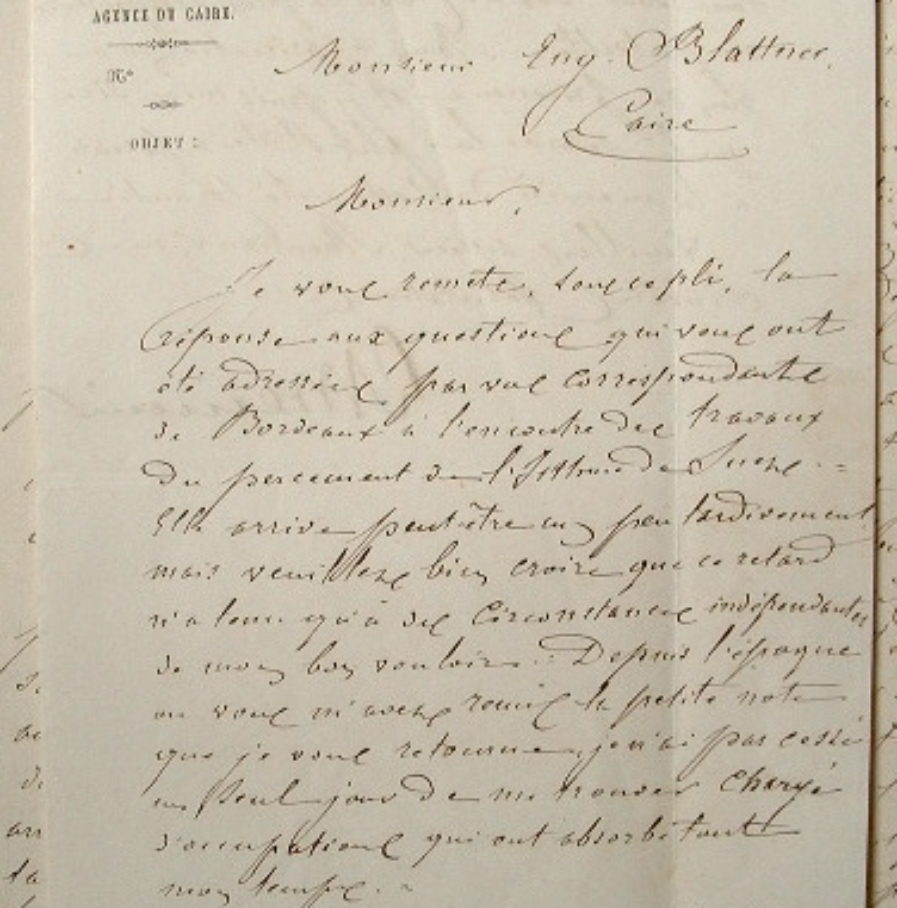 AGENCE DU CAIRE.
N°
Monsieur Eug. Blattner,
Caire
OBJET :
Monsieur,
Je vous remets, sous ce pli, la
réponse aux questions qui vous ont
été adressées par vos correspondants
de Bordeaux à l'encontre des travaux
du percement de l'Isthme de Suez. =
Elle arrive peut-être un peu tardivement
mais veuillez bien croire que ce retard
n'a tenu qu'à des circonstances indépendantes
de mon bon vouloir. Depuis l'époque
où vous m'avez remis la petite note
que je vous retourne, je n'ai pas cessé
un seul jour de me trouver chargé
d'occupations qui ont absorbé tout
mon temps. =